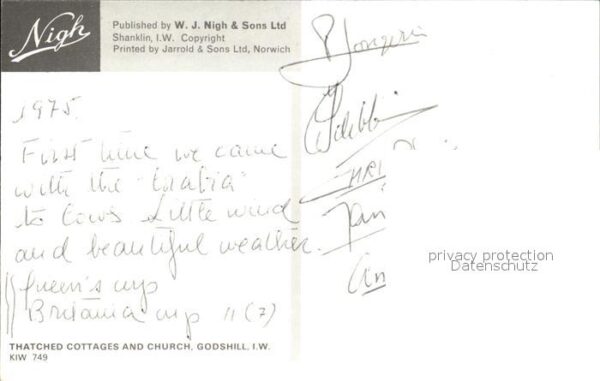 Nigh
Published by W. J. Nigh & Sons Ltd
Shanklin, I.W. Copyright
Printed by Jarrold & Sons Ltd, Norwich
1975.
First time we came
with the "
to Cows Little wind
and beautiful weather.
Queen's cup
Britania cup 11 (7)
Jan
An
privacy protection
Datenschutz
THATCHED COTTAGES AND CHURCH, GODSHILL, I.W.
KIW 749